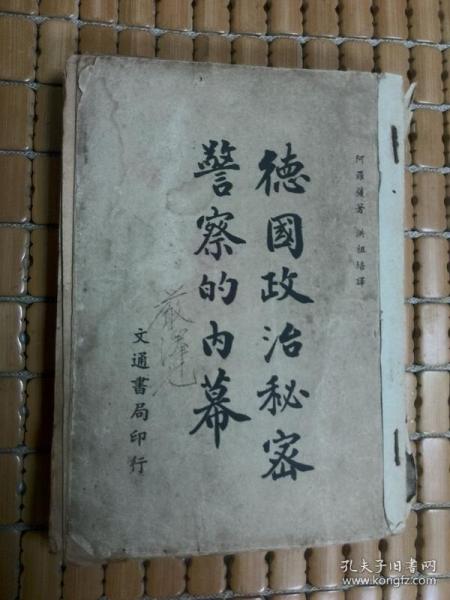 阿羅薩著 洪祖培譯
德國政治秘密
警察的內幕
文通書局印行
孔夫子旧书网
www.kongfz.com